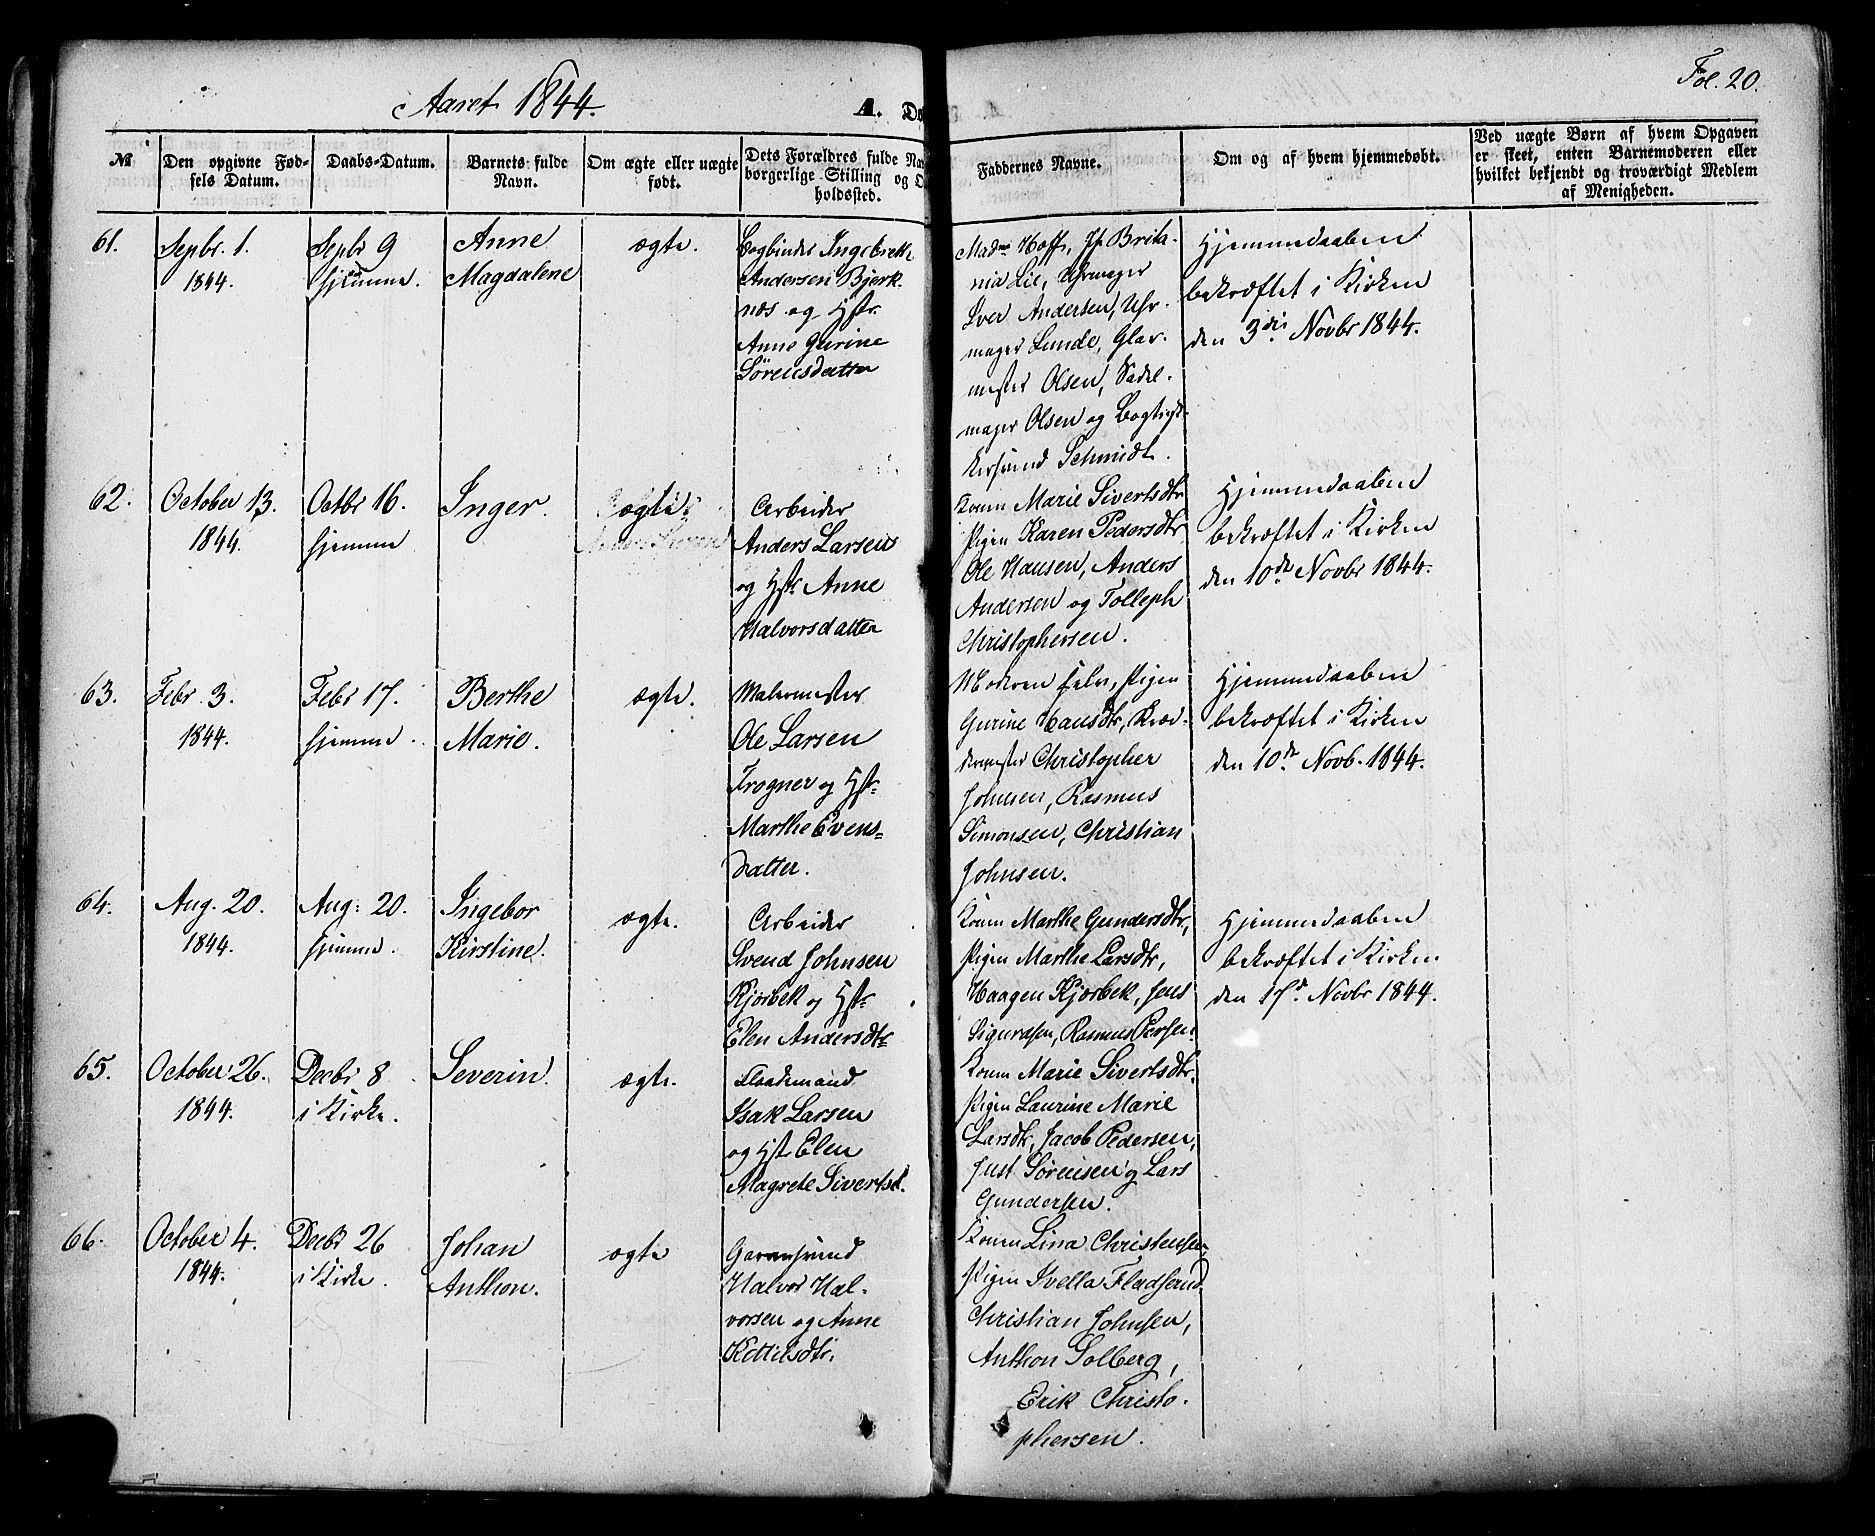 Aaret 1844.
A. Dø
Fol. 20.
№
Den opgivne Fød-
sels Datum.
Daabs-Datum.
Barnets fulde
Navn.
Om ægte eller uægte
født.
Dets Forældres fulde Nav
borgerlige Stilling og O
holdssted.
Faddernes Navne.
Om og af hvem hjemmedøbt.
Ved uægte Børn af hvem Opgaven
er skeet, enten Barnemoderen eller
hvilket bekjendt og troværdigt Medlem
af Menigheden.
61.
Sepbr. 1.
1844.
Sepbr 9
hjemme.
Anne
Magdalene
ægte.
Bogbinder Ingebreth
Andersen Bjerk-
næs og Hstr.
Anne Gurine
Sørensdatter
Mad. Hoff, Jf. Brith-
nia Lie, Uhrmager
Iver Andersen, Uhr-
mager Lunde, Glar-
mester Olsen, Sadel-
mager Olsen og Bogtryk-
kersvend Schmidt.
Hjemmedaaben
bekræftet i Kirken
den 3die Novbr 1844.
62.
October 13.
1844.
Octbr 16.
hjemme
Inger.
ægte.
Arbeider
Anders Larsen
og Hstr. Anne
Halvorsdatter
Konen Marie Sivertsdtr
Pigen Karen Pedersdtr
Ole Hansen, Anders
Andersen og Tolleph
Christophersen.
Hjemmedaaben
bekræftet i Kirken
den 10de Novbr 1844.
63.
Febr. 3.
1844.
Febr 17.
hjemme.
Berthe
Marie.
ægte.
Malermester
Ole Larsen
Trogner og Hstr.
Marthe Evens-
datter.
Moderen selv, Pigen
Gurine Hansdtr,
Christopher
Johnsen, Rasmus
Simonsen, Christian
Johnsen.
Hjemmedaaben
bekræftet i Kirken
den 10de Novb. 1844.
64.
Aug. 20.
1844.
Aug: 20.
hjemme.
Ingebor
Kirstine.
ægte.
Arbeider
Svend Johnsen
Kjørbek og Hstr.
Elen Andersdtr
Konen Marthe Gundersdtr,
Pigen Marthe Larsdtr,
Haagen Kjørbek, Jens
Sigurdsen, Rasmus Persen.
Hjemmedaaben
bekræftet i Kirken.
den 17d. Novbr 1844.
65.
October 26.
1844.
Decbr 8
i Kirke.
Severin.
ægte.
Flaademand
Isak Larsen
og Hst Elen
Magrete Sivertsd.
Konen Marie Sivertsdtr.
Pigen Laurine Marie
Larsdtr, Jacob Pedersen,
Just Sørensen og Lars
Gundersen.
66.
October 4.
1844.
Decbr 26
i Kirke.
Johan
Anthon.
ægte
Garversvend
Halvor Hal-
vorsen og Anne
Kettilsdtr.
Konen Lina Christensen,
Pigen Ivella Fladsrud
Christian Johnsen,
Anthon Solberg,
Erik Christo-
phersen.